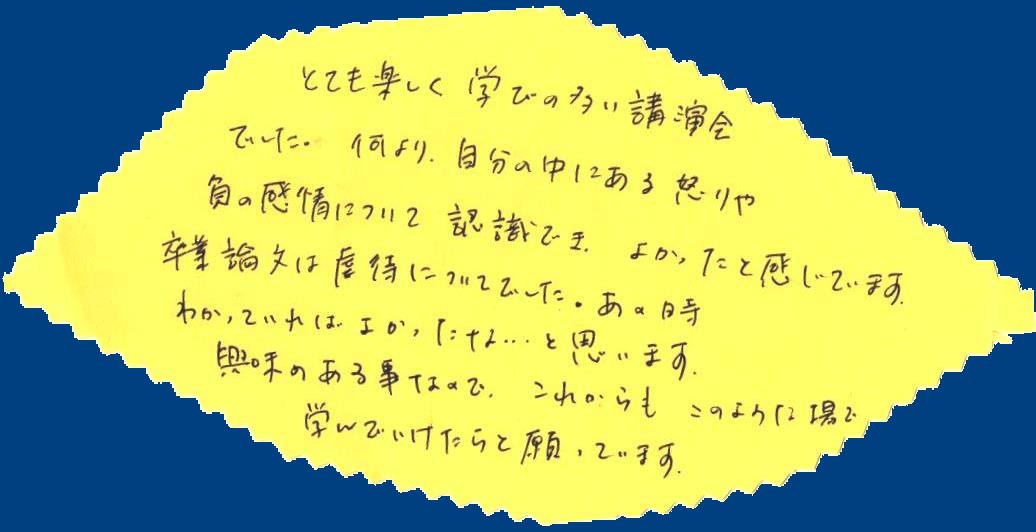 とても楽しく 学びの多い講演会
でした。 何より、自分の中にある怒りや
負の感情について 認識でき、 よかったと感じています。
卒業論文は虐待についてでした。あの時
わかっていればよかったな…と思います。
興味のある事なので、 これからも このような場で
学んでいけたらと願っています。